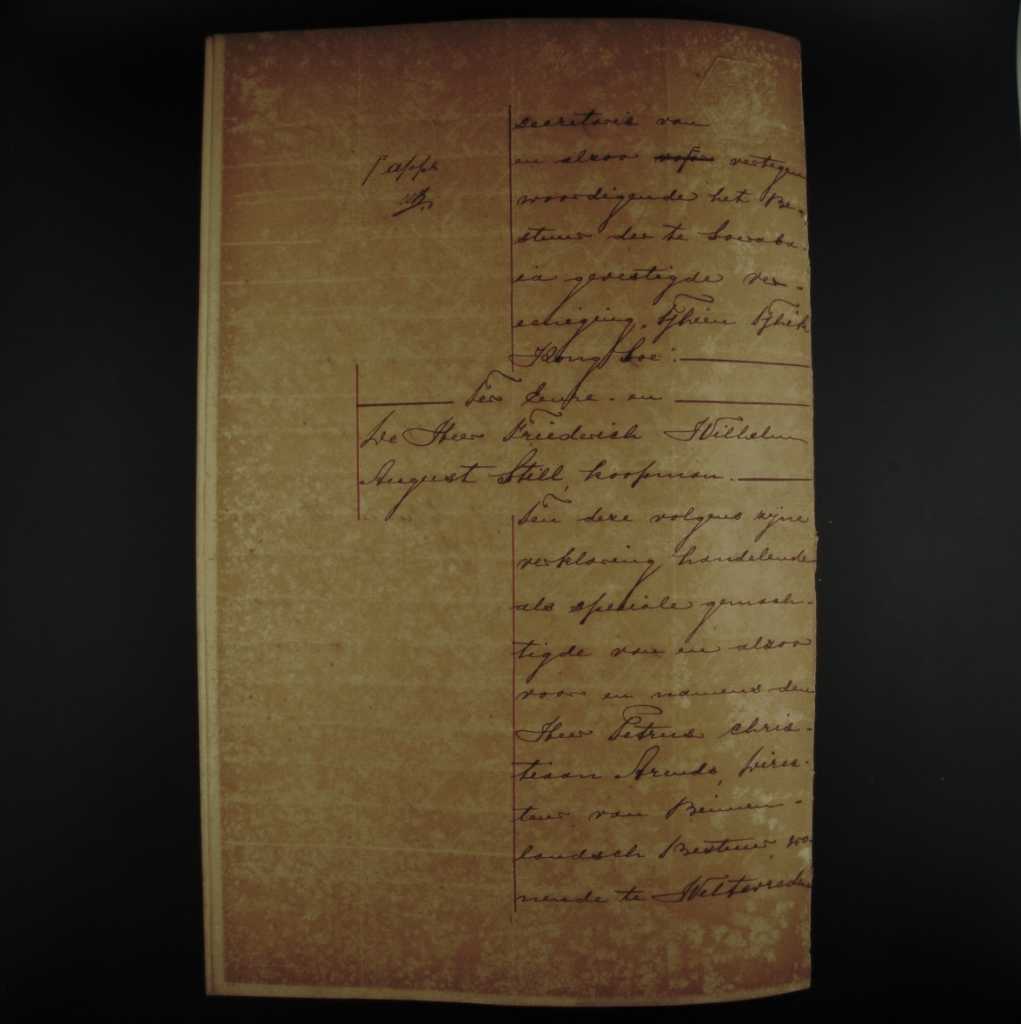 secretaris van
en alzoo vertegen
woordigende het Be-
stuur der te Soeraba-
ia gevestigde ver-
eeniging. Tjhien Tjhik
Kong Soe:
Ter Eenre. en
De Heer Friederich Wilhelm
August Still, koopman.
Ten deze volgens zijne
verklaring handelende
als speciale gemach-
tigde van en alzoo
voor en namens den
Heer Petrus Chris-
tiaan Arends, Direc-
teur van Binnen-
landsch Bestuur, wo-
nende te Weltevreden